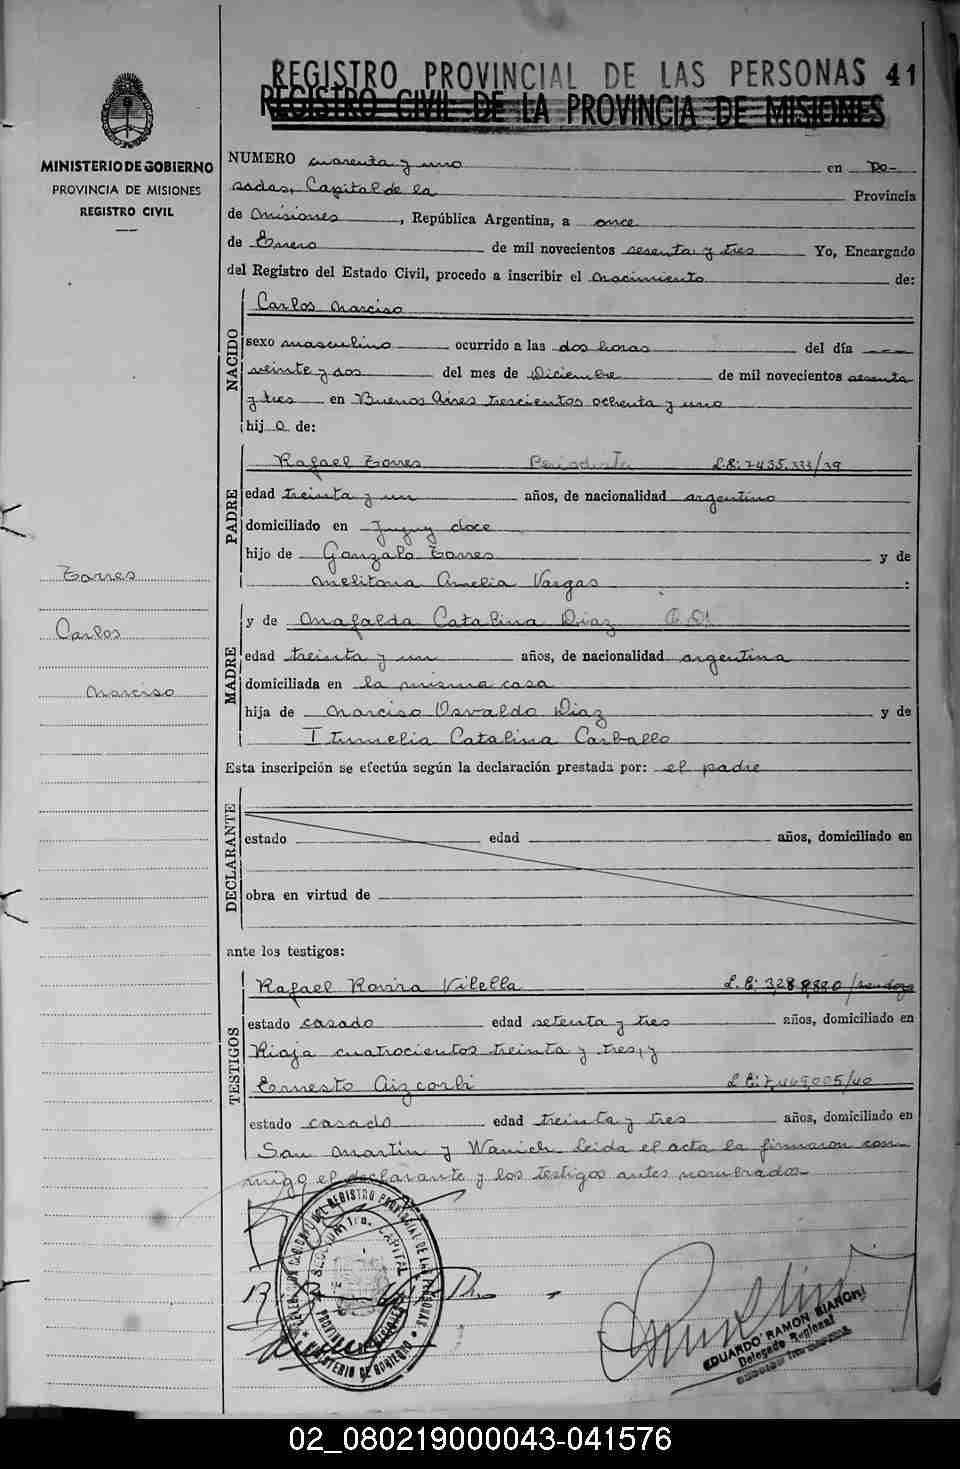 REGISTRO PROVINCIAL DE LAS PERSONAS 41
REGISTRO CIVIL DE LA PROVINCIA DE MISIONES
MINISTERIO DE GOBIERNO
PROVINCIA DE MISIONES
REGISTRO CIVIL
NUMERO cuarenta y uno en Po-
sadas, Capital de la Provincia
de Misiones, República Argentina, a once
de Enero de mil novecientos sesenta y tres Yo, Encargado
del Registro del Estado Civil, procedo a inscribir el nacimiento de:
NACIDO
Carlos Narciso
sexo masculino ocurrido a las dos horas del día
veinte y dos del mes de Diciembre de mil novecientos sesenta
y tres en Buenos Aires trescientos ochenta y uno
hij o de:
PADRE
Rafael Torres Periodista L.E: 7435.333/39
edad treinta y un años, de nacionalidad argentino
domiciliado en Jujuy doce
hijo de Gonzalo Torres y de
Melitona Amelia Vargas :
MADRE
y de Mafalda Catalina Diaz
edad treinta y un años, de nacionalidad argentina
domiciliada en la misma casa
hija de Narciso Osvaldo Diaz y de
Itumelia Catalina Carballo
Torres
Carlos
Narciso
Esta inscripción se efectúa según la declaración prestada por: el padre
DECLARANTE
estado edad años, domiciliado en
obra en virtud de
ante los testigos:
TESTIGOS
Rafael Rovira Vilella L.E: /Mendoza
estado casado edad setenta y tres años, domiciliado en
Rioja cuatrocientos treinta y tres, y
Ernesto Aizcorbi L E: 7,469,005/40
estado casado edad treinta y tres años, domiciliado en
San Martin y Leida el acta la firmaron con-
migo el declarante y los testigos antes nombrados
DEL REGISTRO PROVINCIAL DE LAS PERSONAS
SECCION 1ra. CAPITAL
PROVINCIA DE MISIONES
MINISTERIO DE GOBIERNO
EDUARDO RAMON BIANCHI
Delegado Regional
02_080219000043-041576